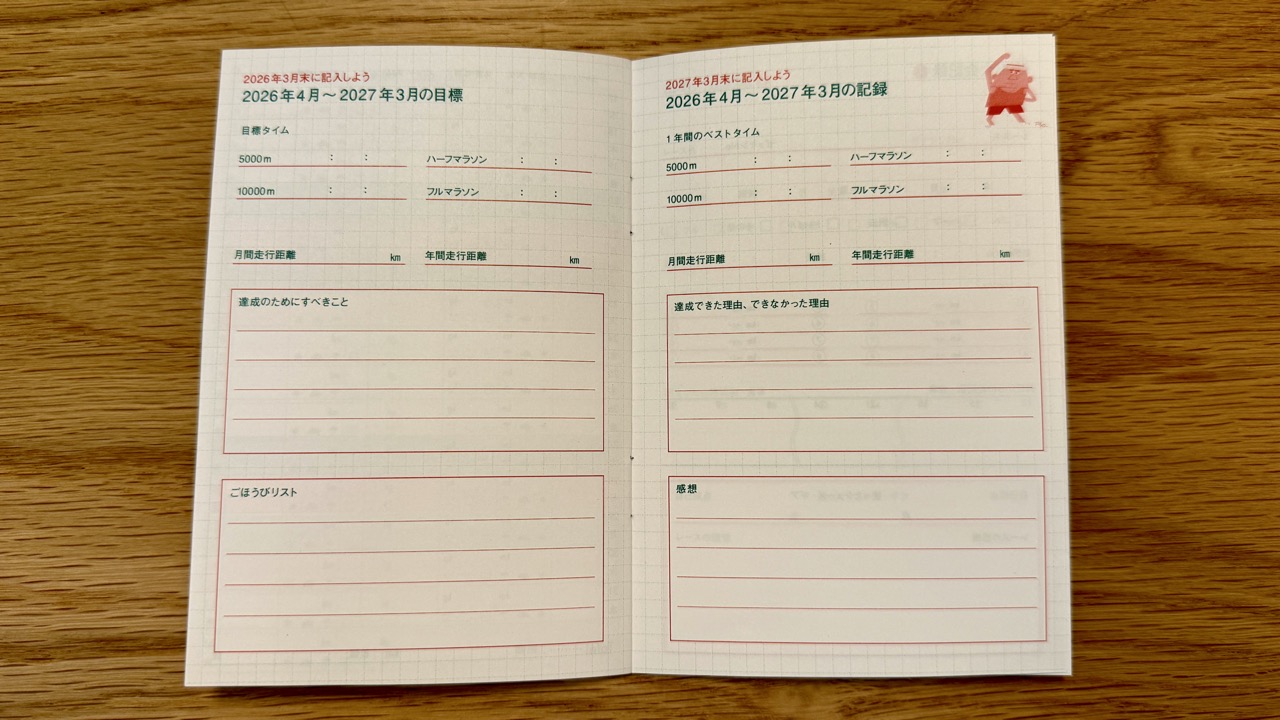 2026年3月末に記入しよう
2026年4月～2027年3月の目標
目標タイム
5000m : : ハーフマラソン : :
10000m : : フルマラソン : :
月間走行距離 km 年間走行距離 km
達成のためにすべきこと
ごほうびリスト
2027年3月末に記入しよう
2026年4月～2027年3月の記録
1年間のベストタイム
5000m : : ハーフマラソン : :
10000m : : フルマラソン : :
月間走行距離 km 年間走行距離 km
達成できた理由、できなかった理由
感想